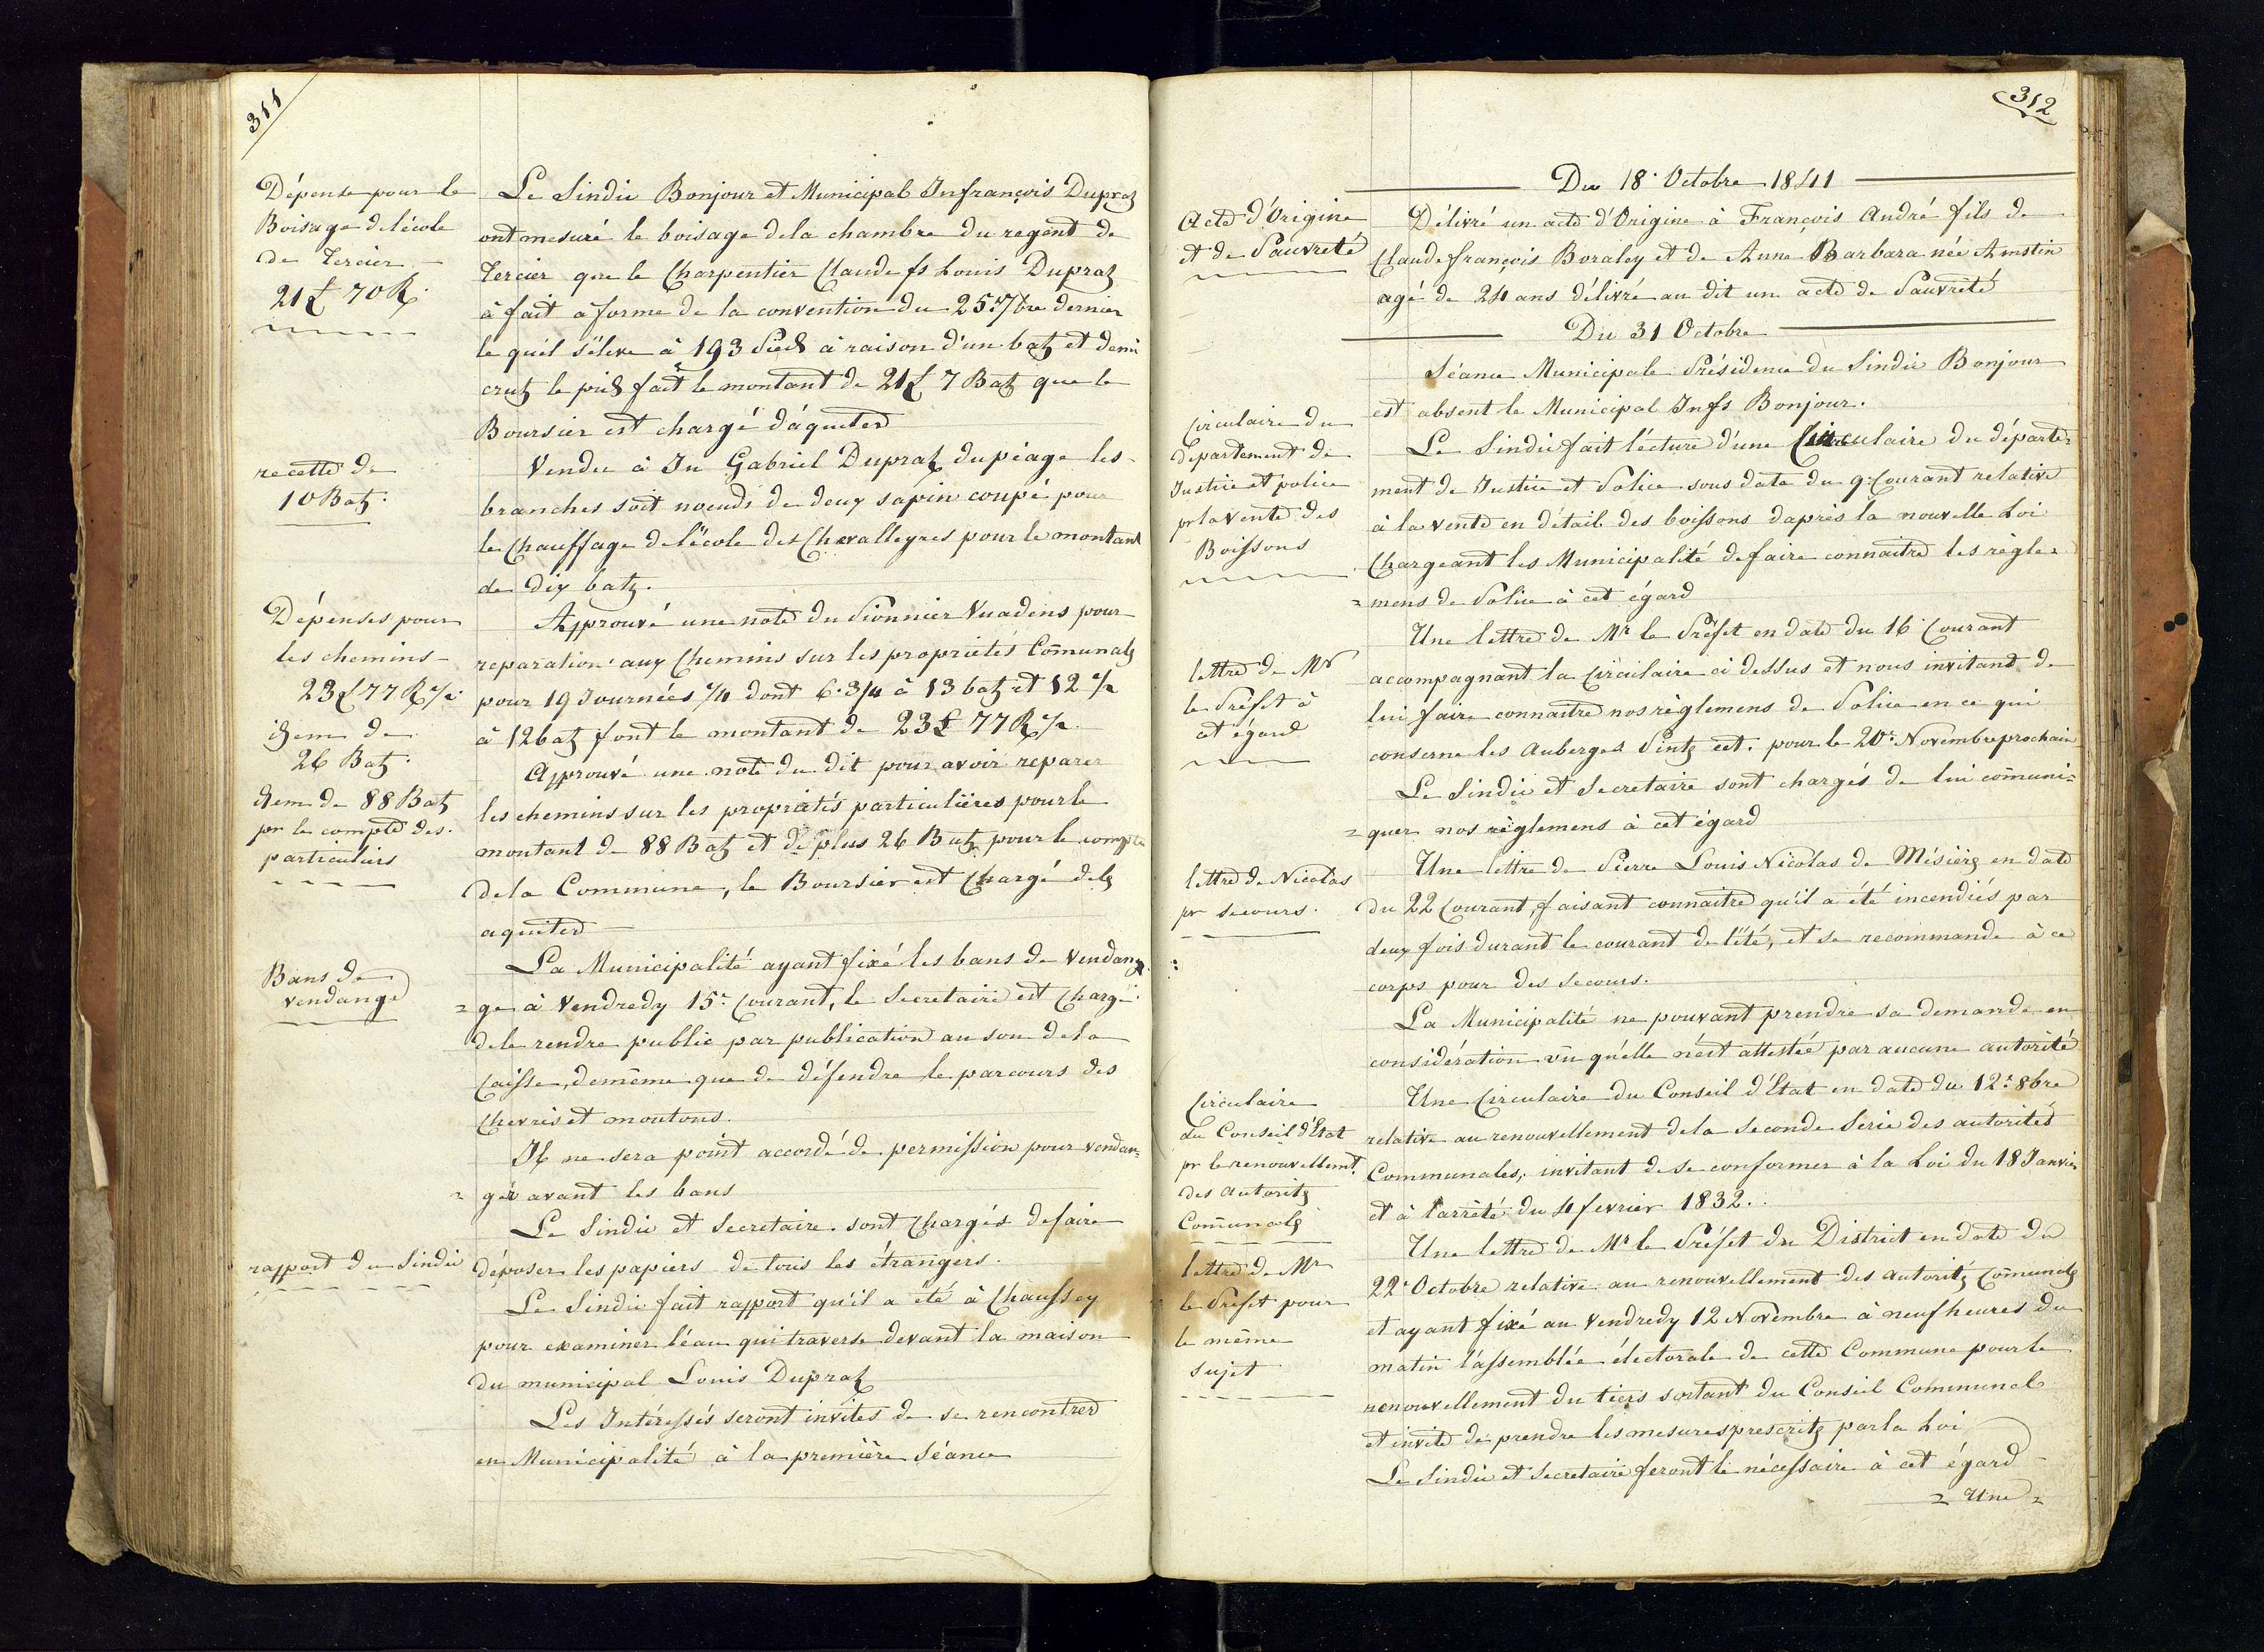 311
Dépense pour le
Boisage de l'école
de Tercier
21£ 70R.
Le Sindic Bonjour et Municipal Jnfrançois Dupraz
ont mesuré le boisage de la chambre du regent de
Tercier que le Charpentier Claude fs Louis Dupraz
à fait à forme de la convention du 25e 7bre dernier
le quél s'éleve à 193 Pieds à raison d'un batz et demi
crutz le pied fait le montant de 21£ 7 Batz que le
Boursier est chargé d'aquiter
recette de
10 Batz.
Vendu à Jn Gabriel Dupraz du péage les
branches soit noeuds de deux sapin coupé pour
le Chauffage de l'école des Chevalleyres pour le montant
de dix batz.
Dépenses pour
les chemins
23£ 77R ½.
idem de
26 Batz.
idem de 88 Batz
pr le compte des
particuliers
Approuvé une note du Pionnier Vuadens pour
reparation aux Chemins sur les propriétés Comunals
pour 19 Journées ¼ dont 6. 3/4 à 13 batz et 12 ½
à 12 batz font le montant de 23£ 77R ½.
Approuvé une note du dit pour avoir reparer
les chemins sur les propriétés particulières pour le
montant de 88 Batz et de plus 26 Batz pour le compte
de la Commune, le Boursier est Chargé de les
aquiter
Bans de
vendange
La Municipalité ayant fixé les bans de Vendan
= ge à Vendredy 15e Courant, le Secretaire est Chargé
de le rendre public par publication au son de la
Caisse, demême que de défendre le parcours des
Chevres et moutons.
Il ne sera point accordé de permission pour vendan=
= gér avant les bans
Le Sindic et Secretaire sont Chargés de faire
déposer les papiers de tous les étrangers.
rapport du Sindic
Le Sindic fait rapport qu'il a été à Chaussey
pour examiner l'éau qui traverse devant la maison
du municipal Louis Dupraz
Les Intéressés seront invités de se rencontrer
en Municipalité à la première Séance
312
Du 18e Octobre 1841
Acte d'Origine
et de Pauvreté
Délivré un acte d'Origine à François André fils de
Claude françois Boraley et de Anne Barbara née Amstin
agé de 24 ans délivré au dit un acte de Pauvreté
Du 31 Octobre
Séance Municipale Présidence du Sindic Bonjour
est absent le Municipal Jnfs Bonjour.
Circulaire du
Departement de
Justice et police
pr la vente des
Boissons
Le Sindic fait lécture d'une Circulaire du départe=
ment de Justice et Police sous date du 9 Courant relative
à la vente en détail des boissons daprès la nouvelle Loi
Chargeant les Municipalité de faire connaitre les règle=
= mens de Police à cet égard
lettre de Mr
le Préfet à
cet égard
Une lettre de Mr le Préfet en date du 16e Courant
accompagnant la Circulaire ci dessus et nous invitant de
lui faire connaitre nos règlemens de Police en ce qui
conserne les Auberges Pintz ect. pour le 20e Novembre prochain
Le Sindic et Secretaire sont chargés de lui comuni=
= quer nos règlemens à cet égard
lettre de Nicolas
pr secours.
Une lettre de Pierre Louis Nicolas de Mésiérs en date
du 22 Courant, faisant connaitre qu'il a été incendiés par
deux fois durant le courant de l'été, et se recommande à ce
corps pour des secours.
La Municipalité ne pouvant prendre sa demande en
considération vu qu'elle n'est attestée par aucune autorité
Circulaire
du Conseil d'Etat
pr le renouvellemt
des autorits
Comunals
Une Circulaire du Conseil d'Etat en date du 12e 8bre
relative au renouvellement de la Seconde Serie des autorités
Communales, invitant de se conformer à la Loi du 18 Janvier
et à l'arrêté du 4 fevrier 1832.
lettre de Mr
le Prefet pour
le même
sujet
Une lettre de Mr le Préfet du District en date du
22e Octobre relative au renouvellement des autorits Comunals
et ayant fixé au Vendredy 12 Novembre à neuf heures du
matin l'assemblée électorale de cette Commune pour le
renouvellement du tiers sortant du Conseil Communal
et invite de prendre les mesures prescrits par la Loi
Le Sindic et Secretaire feront le nécessaire à cet égard
= Une =